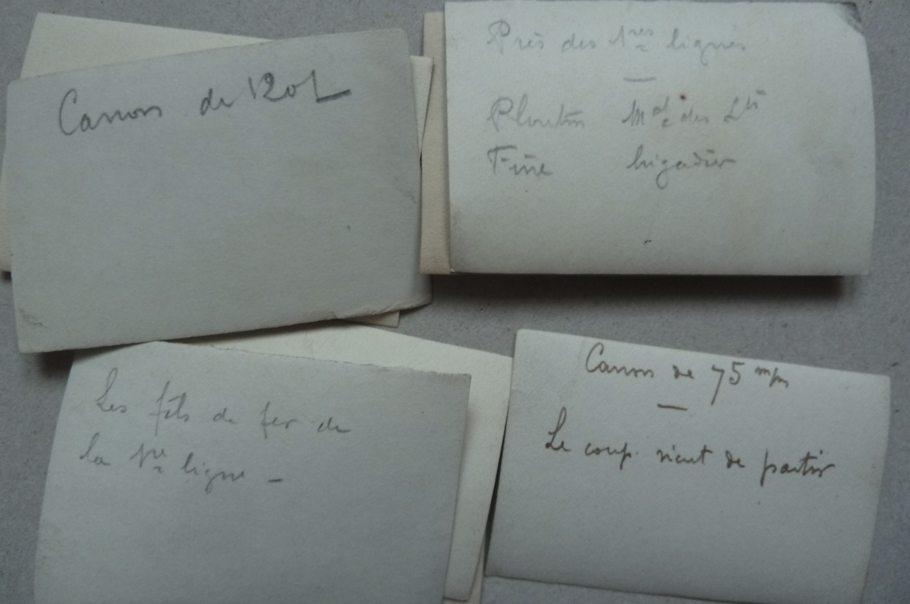 Canon de 120 L
Près des 1res lignes
Ploutin Mal des Lis
Fine brigadier
Les fils de fer de
la 1re ligne -
Canon de 75 mm
Le coup vient de partir